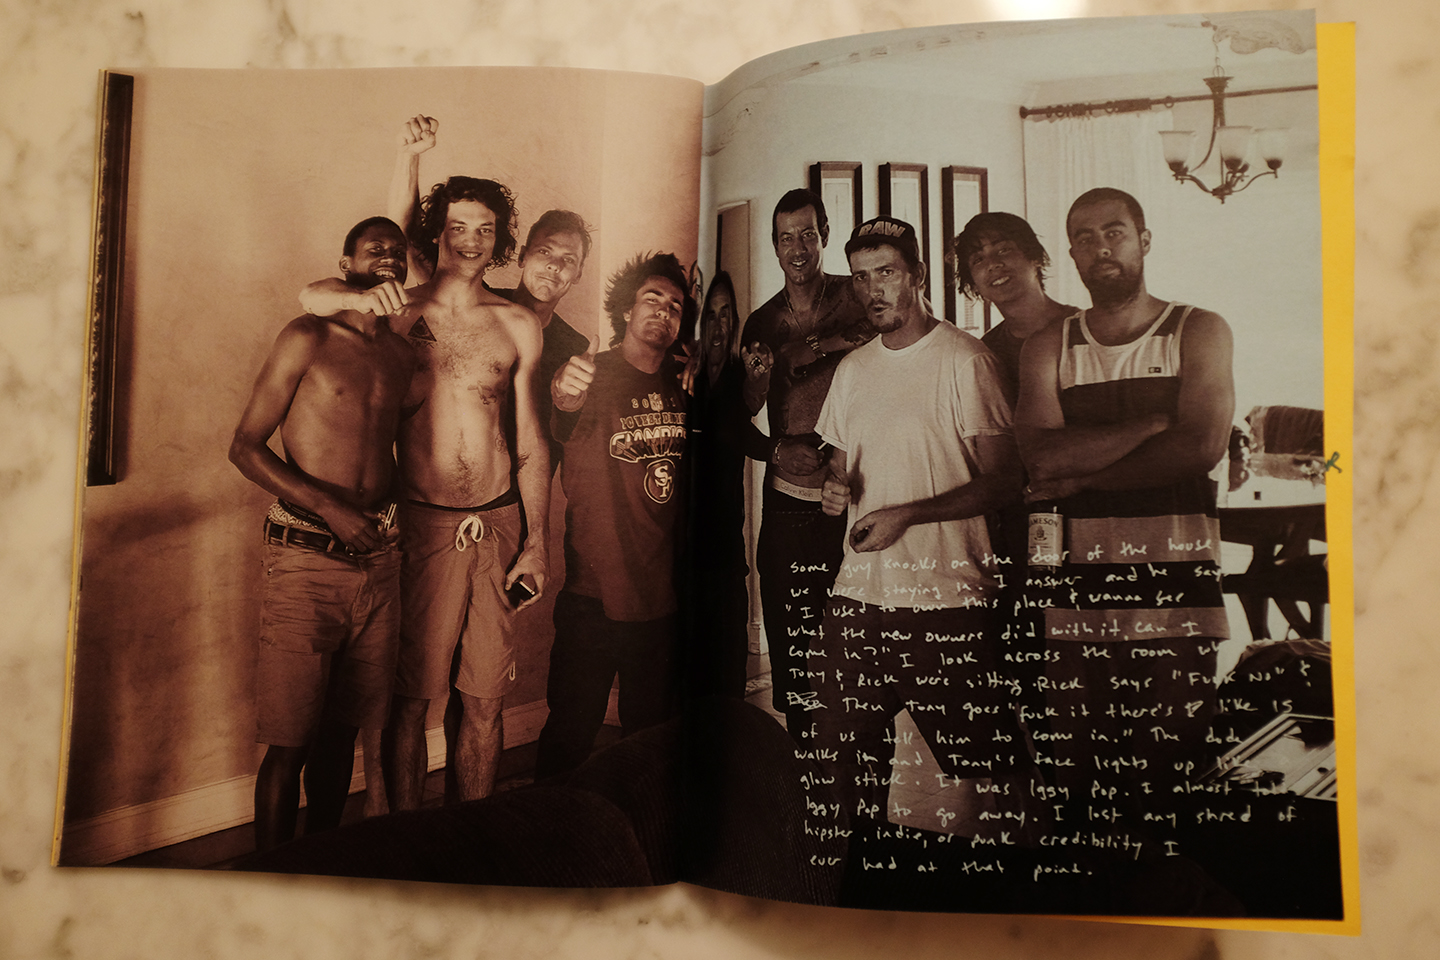 RAW
20
NFC WEST DIVISION
CHAMPIONS
SF
JAMESON
Some guy knocks on the door of the house
we were staying in. I answer and he says
"I used to own this place & wanna see
what the new owners did with it, can I
come in?" I look across the room
Tony & Rick were sitting. Rick says "Fuck No" &
Then Tony goes "fuck it there's like 15
of us tell him to come in." The dude
walks in and Tony's face lights up like
glow stick. It was Iggy Pop. I almost told
Iggy Pop to go away. I lost any shred of
hipster, indie, or punk credibility I
ever had at that point.